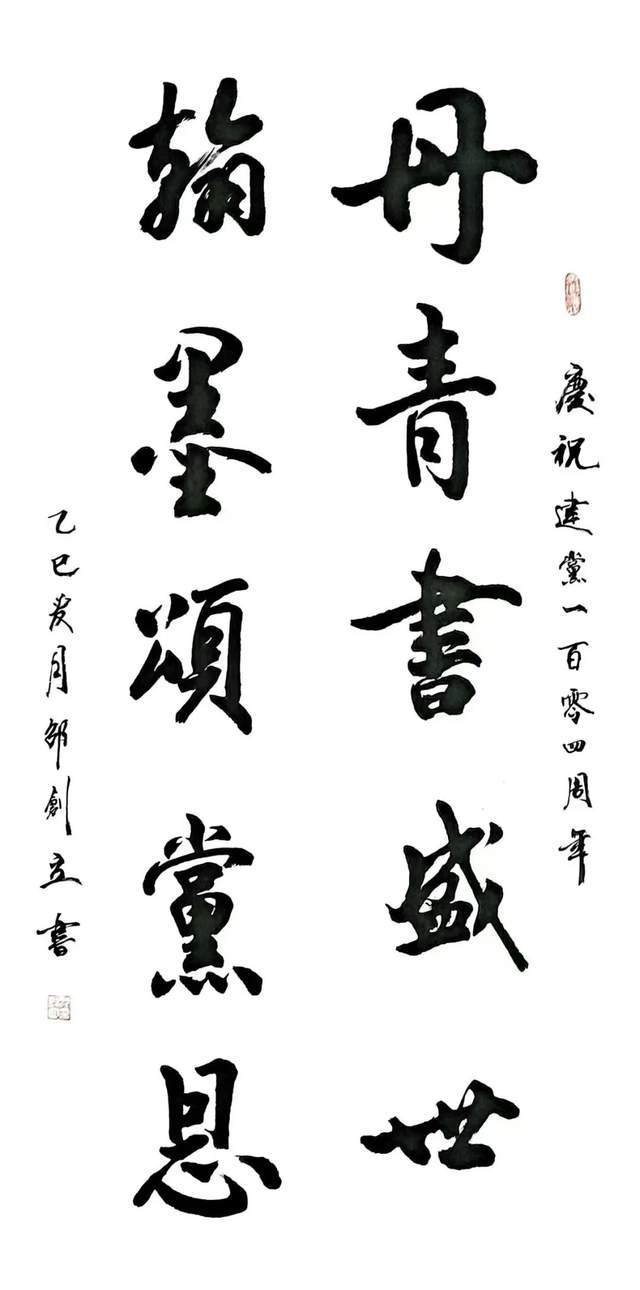 慶祝建黨一百零四周年
丹青書盛世
翰墨頌黨恩
乙巳夏月邵創立書